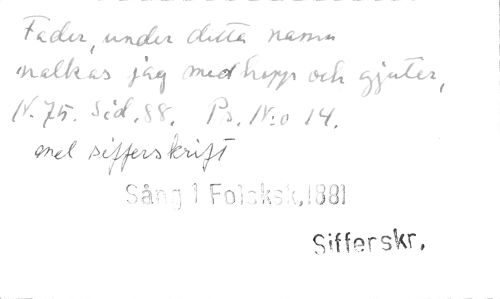 Fader, under detta namn
nalkas jag med hopp och gjuter,
N. 75. Sid. 88. Ps. N:o 14.
mel sifferskrift
Sång 1 Folkssk, 1881
Sifferskr.